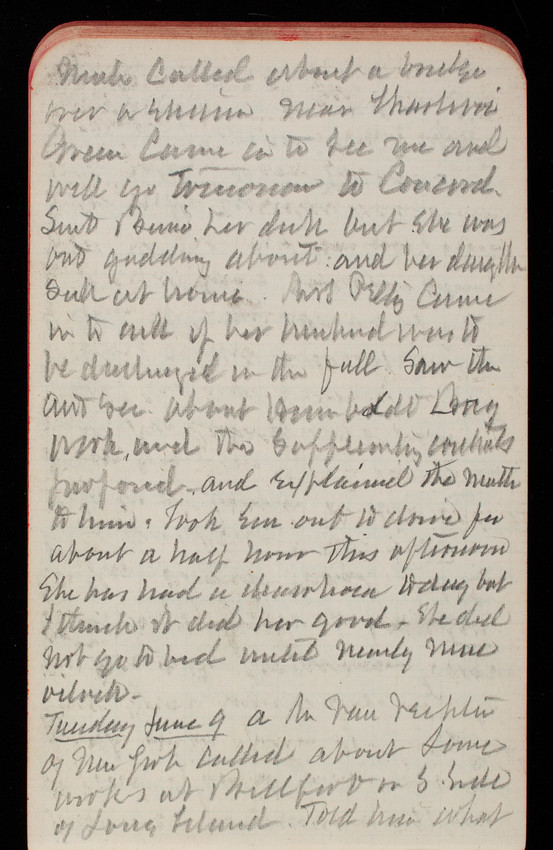 called about a bridge
over a near
Green Came in to see me and
will go Tomorrow to Concord.
Sent her but she was
out gadding about and her daughter
sick at home. Mrs Came
in to ask if her husband was to
be discharged in the fall. Saw the
asst Sec. about Humboldt Bay
work, and the Supplementary contracts
proposed. and explained the matter
to him. Took Em out to drive for
about a half hour this afternoon
She has had a diarrhoea today but
I think it did her good. She did
not go to bed until nearly nine
oclock.
Tuesday June 9 a Mr Van
of New York called about some
works at Bellport on S. Side
of Long Island. Told him what